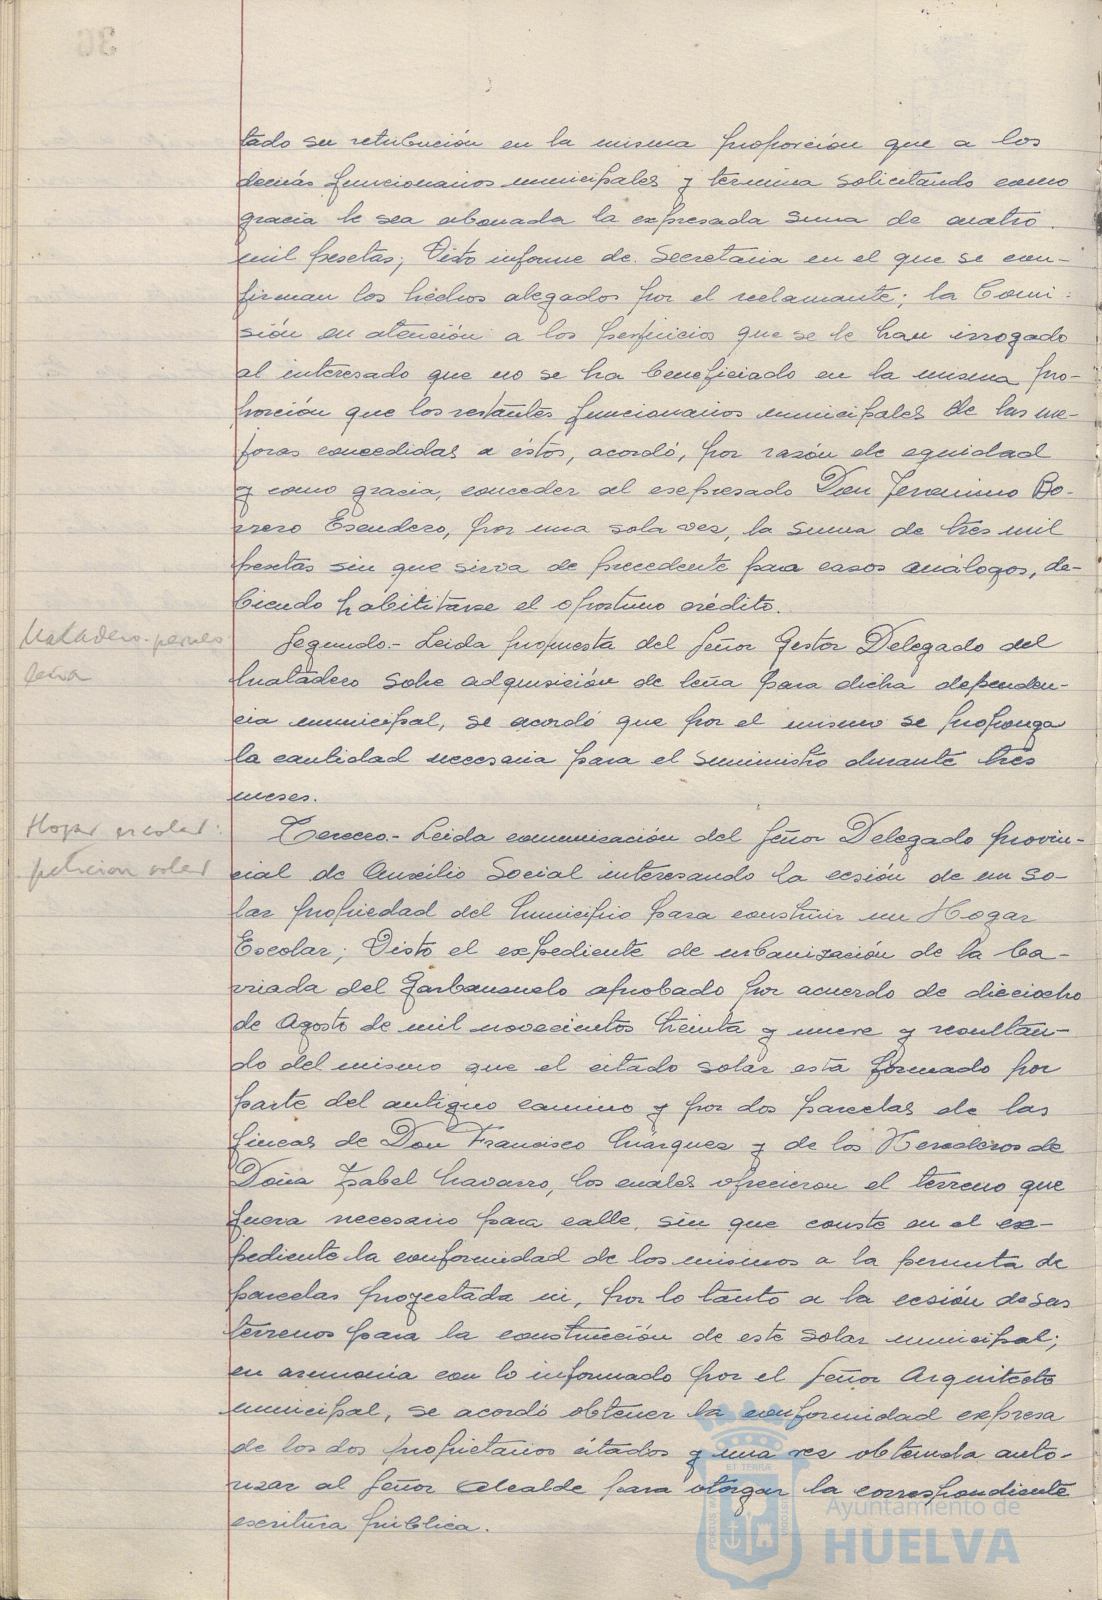 tado su retribución en la misma proporción que a los
demás funcionarios municipales y termina solicitando como
gracia le sea abonada la expresada suma de cuatro
mil pesetas; Visto informe de Secretaria en el que se con-
firman los hechos alegados por el reclamante; la Comi-
sión en atención a los perjuicios que se le han irrogado
al interesado que no se ha beneficiado en la misma pro-
porción que los restantes funcionarios municipales de las me-
joras concedidas a éstos, acordó, por razón de equidad
y como gracia, conceder al expresado Don Jeronimo Bo-
rrero Escudero, por una sola vez, la suma de tres mil
pesetas sin que sirva de precedente para casos análogos, de-
biendo habilitarse el oportuno crédito.
Matadero
leña
Segundo.- Leida propuesta del Señor Gestor Delegado del
Matadero sobre adquisición de leña para dicha dependen-
cia municipal, se acordó que por el mismo se proponga
la cantidad necesaria para el suministro durante tres
meses.
Hogar escolar:
peticion solar
Tercero.- Leida comunicación del Señor Delegado provin-
cial de Auxilio Social interesando la cesión de un so-
lar propiedad del Municipio para construir un Hogar
Escolar; Visto el expediente de urbanización de la Ba-
rriada del Garbanzuelo aprobado por acuerdo de dieciocho
de Agosto de mil novecientos treinta y nueve y resultan-
do del mismo que el citado solar esta formado por
parte del antiguo camino y por dos parcelas de las
fincas de Don Francisco Márquez y de los Herederos de
Doña Isabel Navarro, los cuales ofrecieron el terreno que
fuera necesario para calle, sin que conste en el ex-
pediente la conformidad de los mismos a la permuta de
parcelas proyectada ni, por lo tanto a la cesión de sus
terrenos para la construcción de este solar municipal;
en armonia con lo informado por el Señor Arquitecto
municipal, se acordó obtener la conformidad expresa
de los dos propietarios citados y una vez obtenida auto-
rizar al Señor Alcalde para otorgar la correspondiente
escritura pública.
Ayuntamiento de
HUELVA